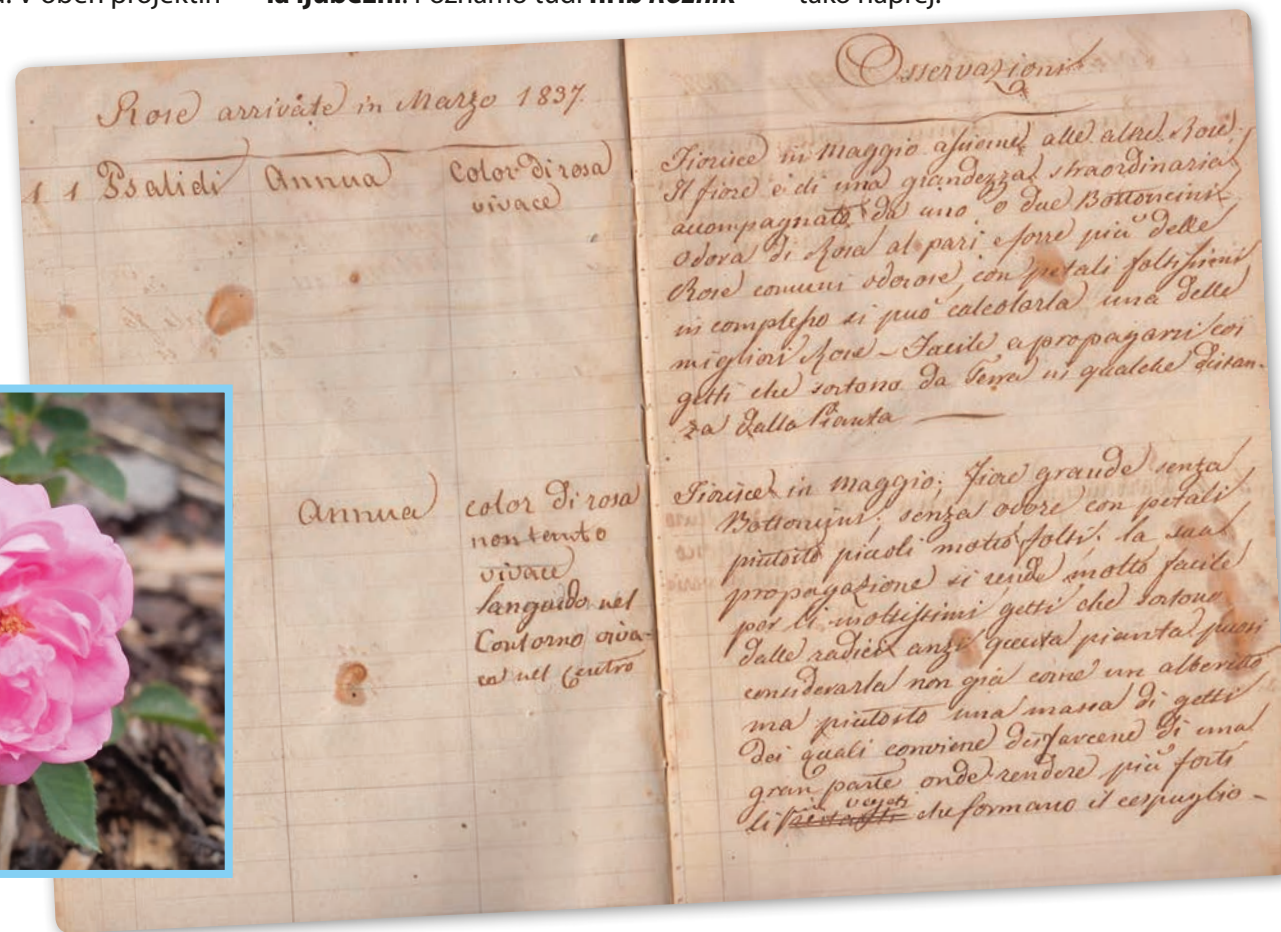 v obeh projektih
la ljubezni. Poznamo tudi hrib Rožnik
tako naprej.
Rose arrivate in Marzo 1837.
1 1 Psalidi Annua Color di rosa
vivace
Annua color di rosa
non tanto
vivace
languido nel
Contorno viva-
ce nel Centro
Osservazioni
Fiorisce in Maggio assieme alle altre Rose.
Il fiore è di una grandezza straordinaria
accompagnato da uno o due Bottoncini
odora di Rosa al pari e forse più delle
Rose comuni odorose, con petali foltissimi
in complesso si può calcolarla una delle
migliori Rose - Facile a propagarsi coi
getti che sortono da Terra in qualche distan-
za dalla Pianta
Fiorisce in Maggio; fiore grande senza
Bottoncini; senza odore con petali
piutosto piccoli molto folti. la sua
propagazione si rende molto facile
per li moltissimi getti che sortono
dalle radici anzi questa pianta puosi
considerarla non già come un alberetto
ma piutosto una massa di getti
dei quali conviene disfarcene di una
gran parte onde rendere più forti
li più vegeti che formano il cespuglio -